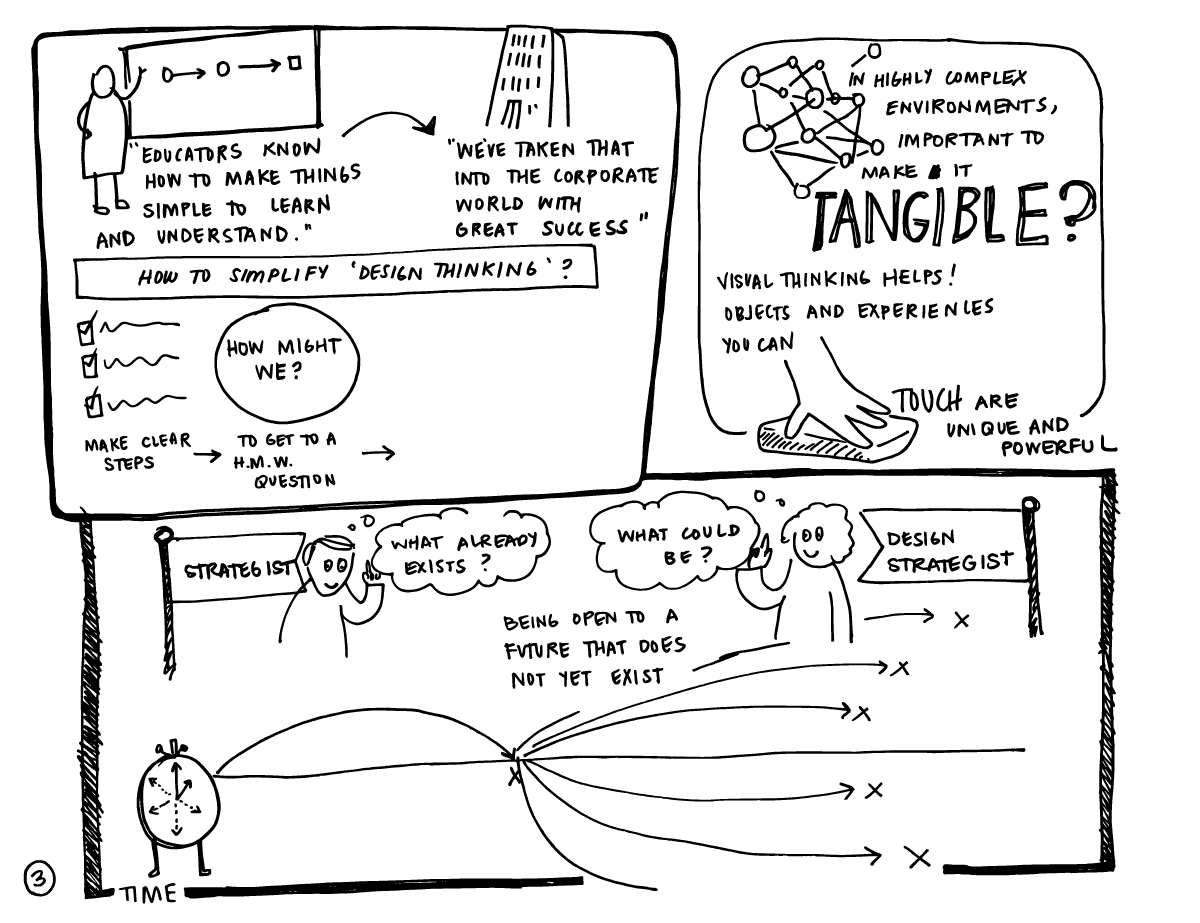 "EDUCATORS KNOW
HOW TO MAKE THINGS
SIMPLE TO LEARN
AND UNDERSTAND."
"WE'VE TAKEN THAT
INTO THE CORPORATE
WORLD WITH
GREAT SUCCESS"
HOW TO SIMPLIFY 'DESIGN THINKING'?
HOW MIGHT
WE?
MAKE CLEAR
STEPS
TO GET TO A
H.M.W.
QUESTION
IN HIGHLY COMPLEX
ENVIRONMENTS,
IMPORTANT TO
MAKE IT
TANGIBLE?
VISUAL THINKING HELPS!
OBJECTS AND EXPERIENCES
YOU CAN
TOUCH ARE
UNIQUE AND
POWERFUL
STRATEGIST
WHAT ALREADY
EXISTS?
WHAT COULD
BE?
DESIGN
STRATEGIST
BEING OPEN TO A
FUTURE THAT DOES
NOT YET EXIST
X
X
X
X
X
X
TIME
3